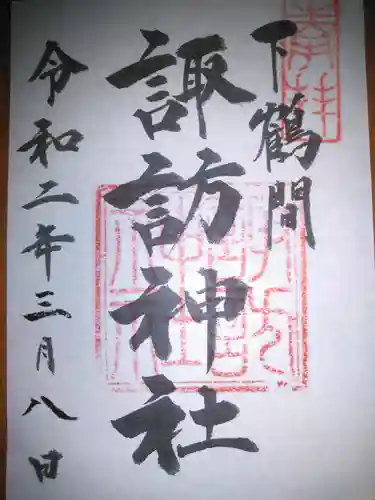 奉拝
下鶴間
諏訪神社
令和二年三月八日